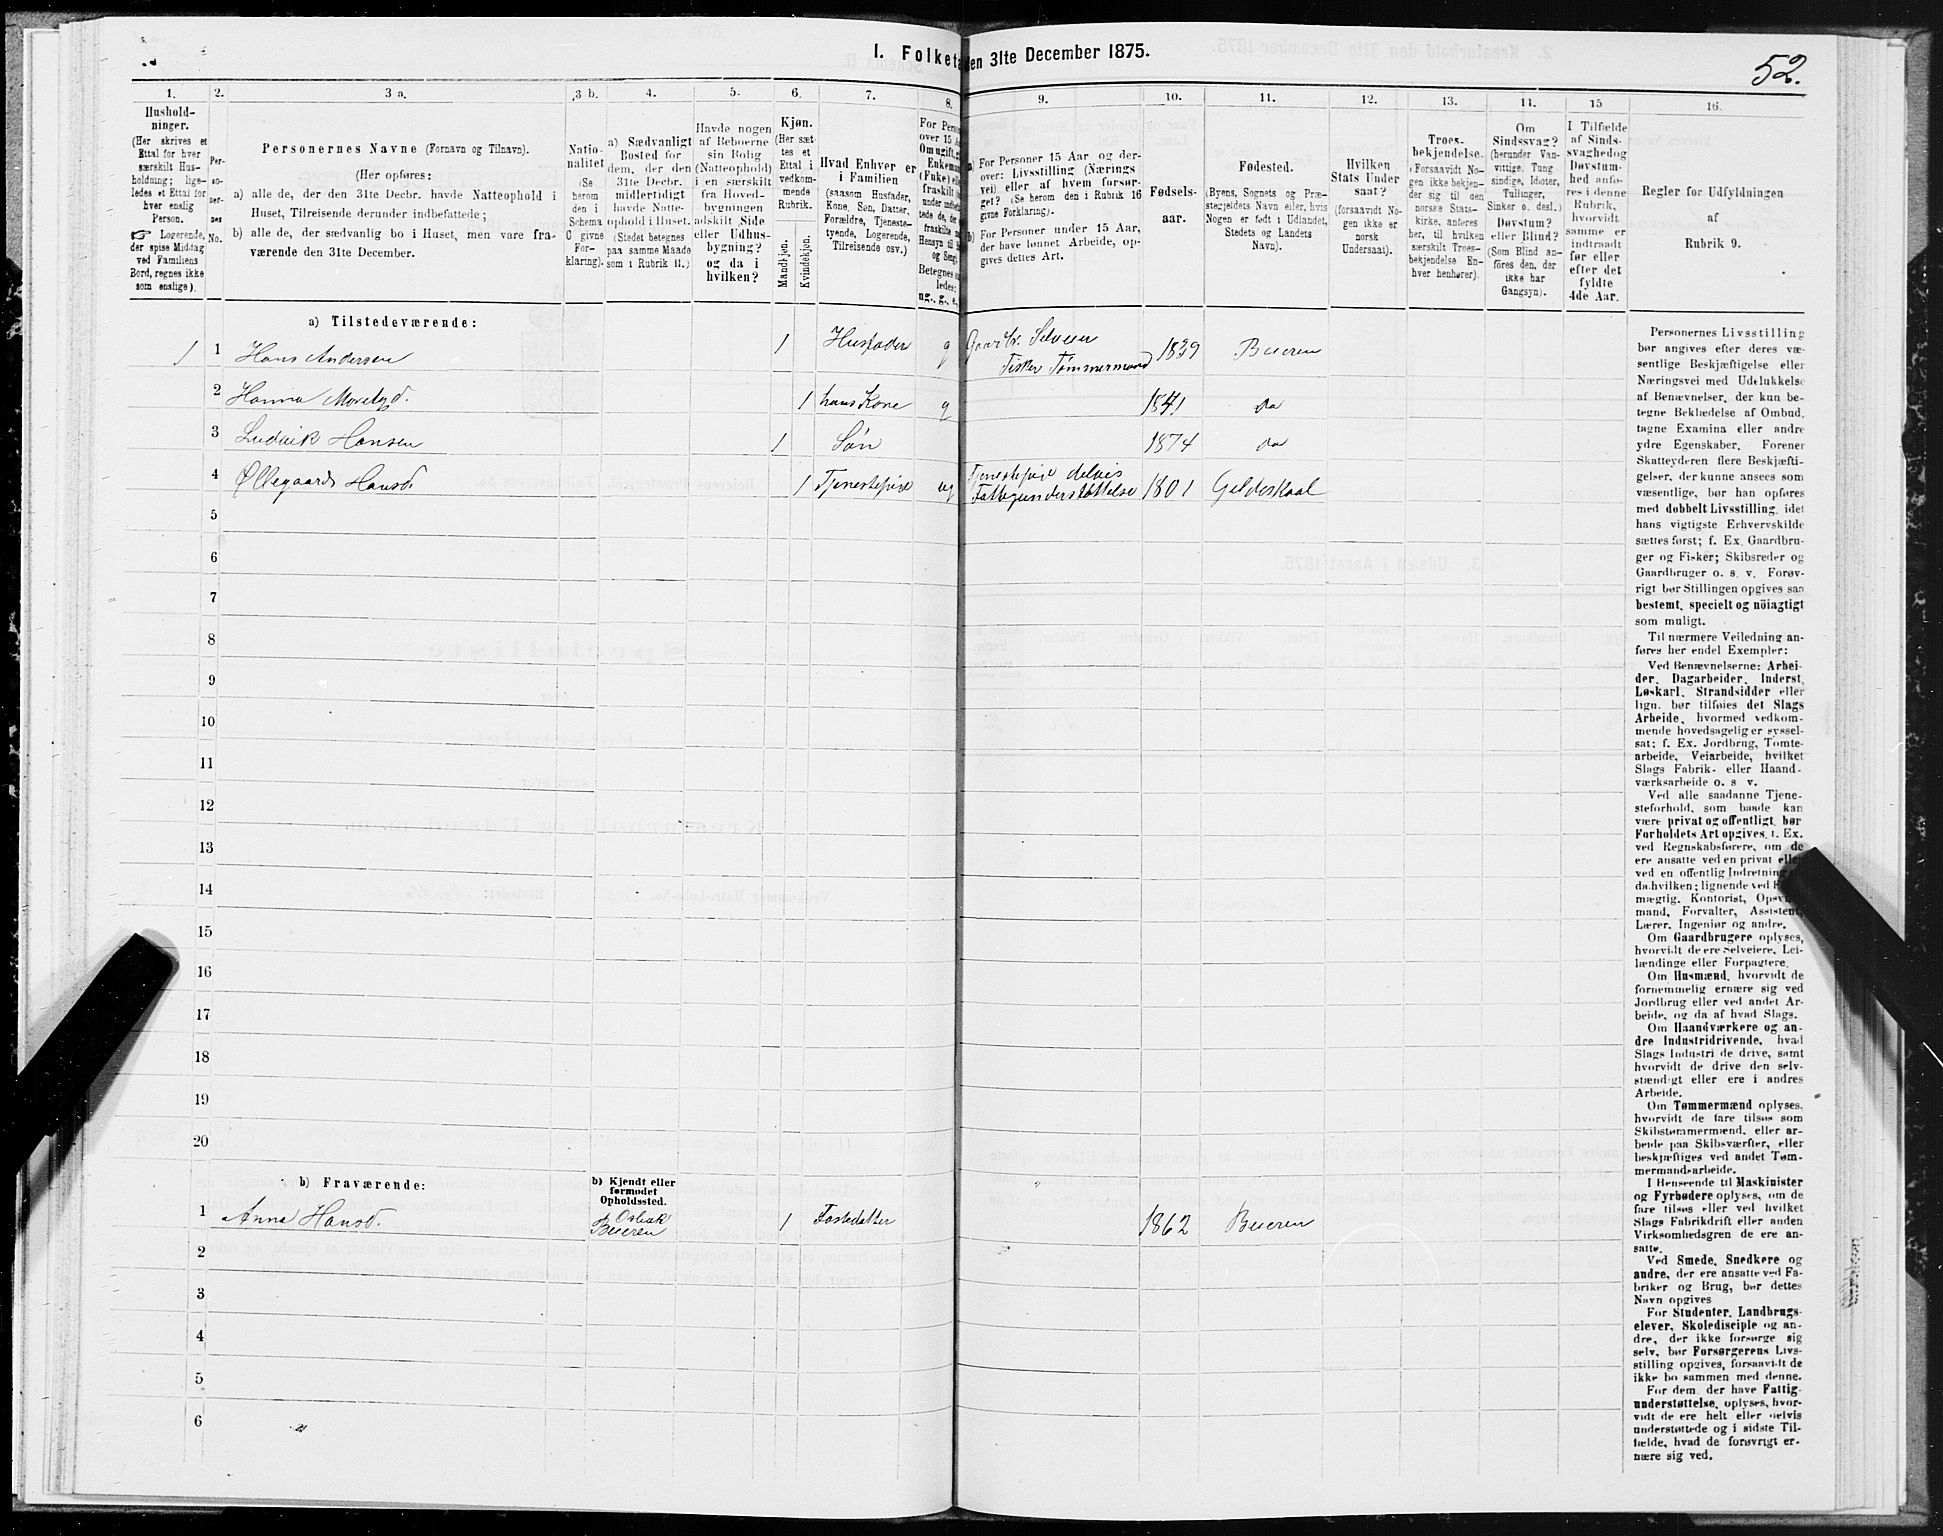 I. Folketa
en 31te December 1875.
52.
1.
2.
3 a.
3 b.
4.
5.
6.
7.
8.
9.
10.
11.
12.
13.
14.
15
16.
Hushold-
ninger.
(Her skrives et
Ettal for hver
særskilt Hus-
holdning; lige-
ledes et Ettal for
hver enslig
Person.
☞ Logerende,
der spise Middag
ved Familiens
Bord, regnes ikke
som enslige).
Per-
so-
ner-
nes
No.
Personernes Navne (Fornavn og Tilnavn).
(Her opføres:
a) alle de, der den 31te Decbr. havde Natteophold i
Huset, Tilreisende derunder indbefattede;
b) alle de, der sædvanlig bo i Huset, men vare fra-
værende den 31te December.
Natio-
nalitet
(Se
herom
den i
Schema
C givne
For-
klaring).
a) Sædvanligt
Bosted for
dem, der den
31te Decbr.
midlertidigt
havde Natte-
ophold i Huset.
(Stedet betegnes
paa samme Maade
som i Rubrik 11.)
Havde nogen
af Beboerne
sin Bolig
(Natteophold)
i en særskilt
fra Hoved-
bygningen
adskilt Side
eller Udhus-
bygning?
og da i
hvilken?
Kjøn.
(Her sæt-
tes et
Ettal i
vedkom-
mende
Rubrik.
Mandkjøn.
Kvindekjøn.
Hvad Enhver er
i Familien
(saasom Husfader,
Kone, Søn, Datter,
Forældre, Tjeneste-
tyende, Logerende,
Tilreisende osv.)
For Perso
over 15 Aa
Om ugift, g
Enkeman
(Enke) elle
fraskilt
under indbefat
tede de, de
fraskilte
Hensyn til B
og Seng).
Betegnes
ledes:
ug., g., e.,
a) For Personer 15 Aar og der-
over: Livsstilling (Nærings
vei) eller af hvem forsør-
get? (Se herom den i Rubrik 16
givne Forklaring).
b) For Personer under 15 Aar,
der have lønnet Arbeide, op-
gives dettes Art.
Fødsels-
aar.
Fødested.
(Byens, Sognets og Præ-
stegjeldets Navn eller, hvis
Nogen er født i Udlandet,
Stedets og Landets
Navn).
Hvilken
Stats Under
saat?
(forsaavidt No-
gen ikke er
norsk
Undersaat).
Troes-
bekjendelse.
(Forsaavidt No-
gen ikke bekjen-
der sig til den
norske Stats-
kirke, anføres
her, til hvilken
særskilt Troes-
bekjendelse En-
hver henhører).
Om
Sindssvag?
(herunder Van-
vittige, Tung
sindige, Idioter,
Tullinger,
Sinker o. desl.)
Døvstum?
eller Blind?
(Som Blind an-
føres den, der
ikke har
Gangsyn).
I Tilfælde
af Sinds-
svaghed og
Døvstum-
hed anfø-
res i denne
Rubrik,
hvorvidt
samme er
indtraadt
før eller
efter det
fyldte
4de Aar.
Regler for Udfyldningen
af
Rubrik 9.
a) Tilstedeværende:
1 1 Hans Andersen 1 Husfader g Gaardbr. Selveier
Fisker Tømmermand 1829 Beieren
2 Hanna Mortensd. 1 hans Kone g 1841 do
3 Ludvik Hansen 1 Søn 1874 do
4 Øllegaard Hansd. 1 Tjenestepige ug Tjenestepige delvis
Fattigunderstøttelse 1801 Gildeskaal
5
6
7
8
9
10
11
12
13
14
15
16
17
18
19
20
b) Fraværende:
b) Kjendt eller
formodet
Opholdssted.
1 Anna Hansd. Beieren 1 Fostedatter 1862 Beieren
2
3
4
5
6
Personernes Livsstilling
bør angives efter deres væ-
sentlige Beskjæftigelse eller
Næringsvei med Udelukkelse
af Benævnelser, der kun be-
tegne Beklædelse af Ombud,
tagne Examina eller andre
ydre Egenskaber. Forener
Skatteyderen flere Beskjæfti-
gelser, der kunne ansees som
væsentlige, bør han opføres
med dobbelt Livsstilling, idet
hans vigtigste Erhvervskilde
sættes først; f. Ex. Gaardbru-
ger og Fisker; Skibsreder og
Gaardbruger o. s. v. Forøv-
rigt bør Stillingen opgives saa
bestemt, specielt og nöiagtigt
som muligt.
Til nærmere Veiledning an-
føres her endel Exempler:
Ved Benævnelserne: Arbei-
der, Dagarbeider, Inderst,
Løskarl, Strandsidder eller
lign. bør tilføies det Slags
Arbeide, hvormed vedkom-
mende hovedsagelig er syssel-
sat; f. Ex. Jordbrug, Tomte-
arbeide, Veiarbeide, hvilket
Slags Fabrik- eller Haand-
værksarbeide o. s v.
Ved alle saadanne Tjene-
steforhold, som baade kan
være privat og offentligt, bør
Forholdets Art opgives, t. Ex.
ved Regnskabsførere, om de
ere ansatte ved en privat eller
ved en offentlig Indretning
da hvilken; lignende ved
mægtig, Kontorist, Opsy
mand, Forvalter, Assistent,
Lærer, Ingeniør og andre.
Om Gaardbrugere oplyses,
hvorvidt de ere Selveiere, Lei-
lændinge eller Forpagtere.
Om Husmænd, hvorvidt de
fornemmelig ernære sig ved
Jordbrug eller ved andet Ar-
beide, og da af hvad Slags.
Om Haandværkere og an-
dre Industridrivende, hvad
Slags Industri de drive, samt
hvorvidt de drive den selv-
stændigt eller ere i andres
Arbeide.
Om Tømmermænd oplyses,
hvorvidt de fare tilsøs som
Skibstømmermænd, eller ar-
beide paa Skibsværfter, eller
beskjæftiges ved andet Tøm-
mermandsarbeide.
I Henseende til Maskinister
og Fyrbødere oplyses, om de
fare tilsøs eller ved hvilket
Slags Fabrikdrift eller anden
Virksomhedsgren de ere an-
satte.
Ved Smede, Snedkere og
andre, der ere ansatte ved Fa-
briker og Brug, bør dettes
Navn opgives
For Studenter, Landbrugs-
elever, Skoledisciple og an-
dre, der ikke forsørge sig
selv, bør Forsørgerens Livs-
stilling opgives, forsaavidt de
ikke bo sammen med denne.
For dem, der have Fattig-
understøttelse, oplyses, hvor-
vidt de ere helt eller delvis
understøttede og i sidste Til-
fælde, hvad de forøvrigt er-
nære sig ved.